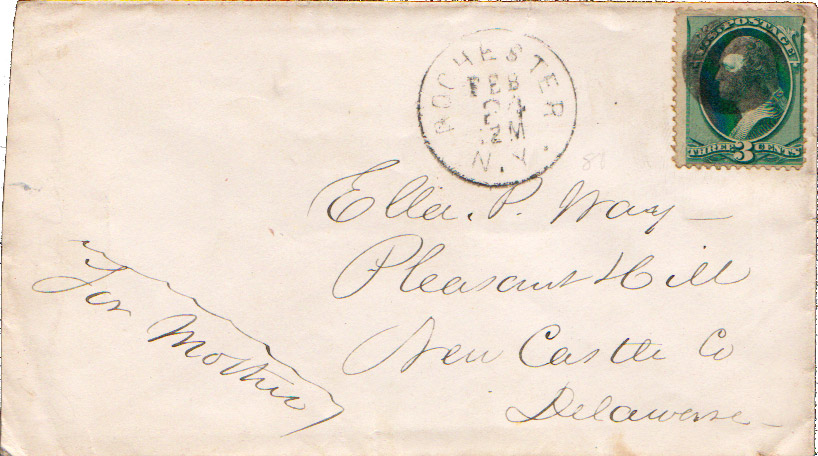 ROCHESTER
FEB
24
12M
N.Y.
U.S. POSTAGE
THREE 3 CENTS
Ella. P. Way
Pleasant Hill
New Castle Co
Delaware
For Mother